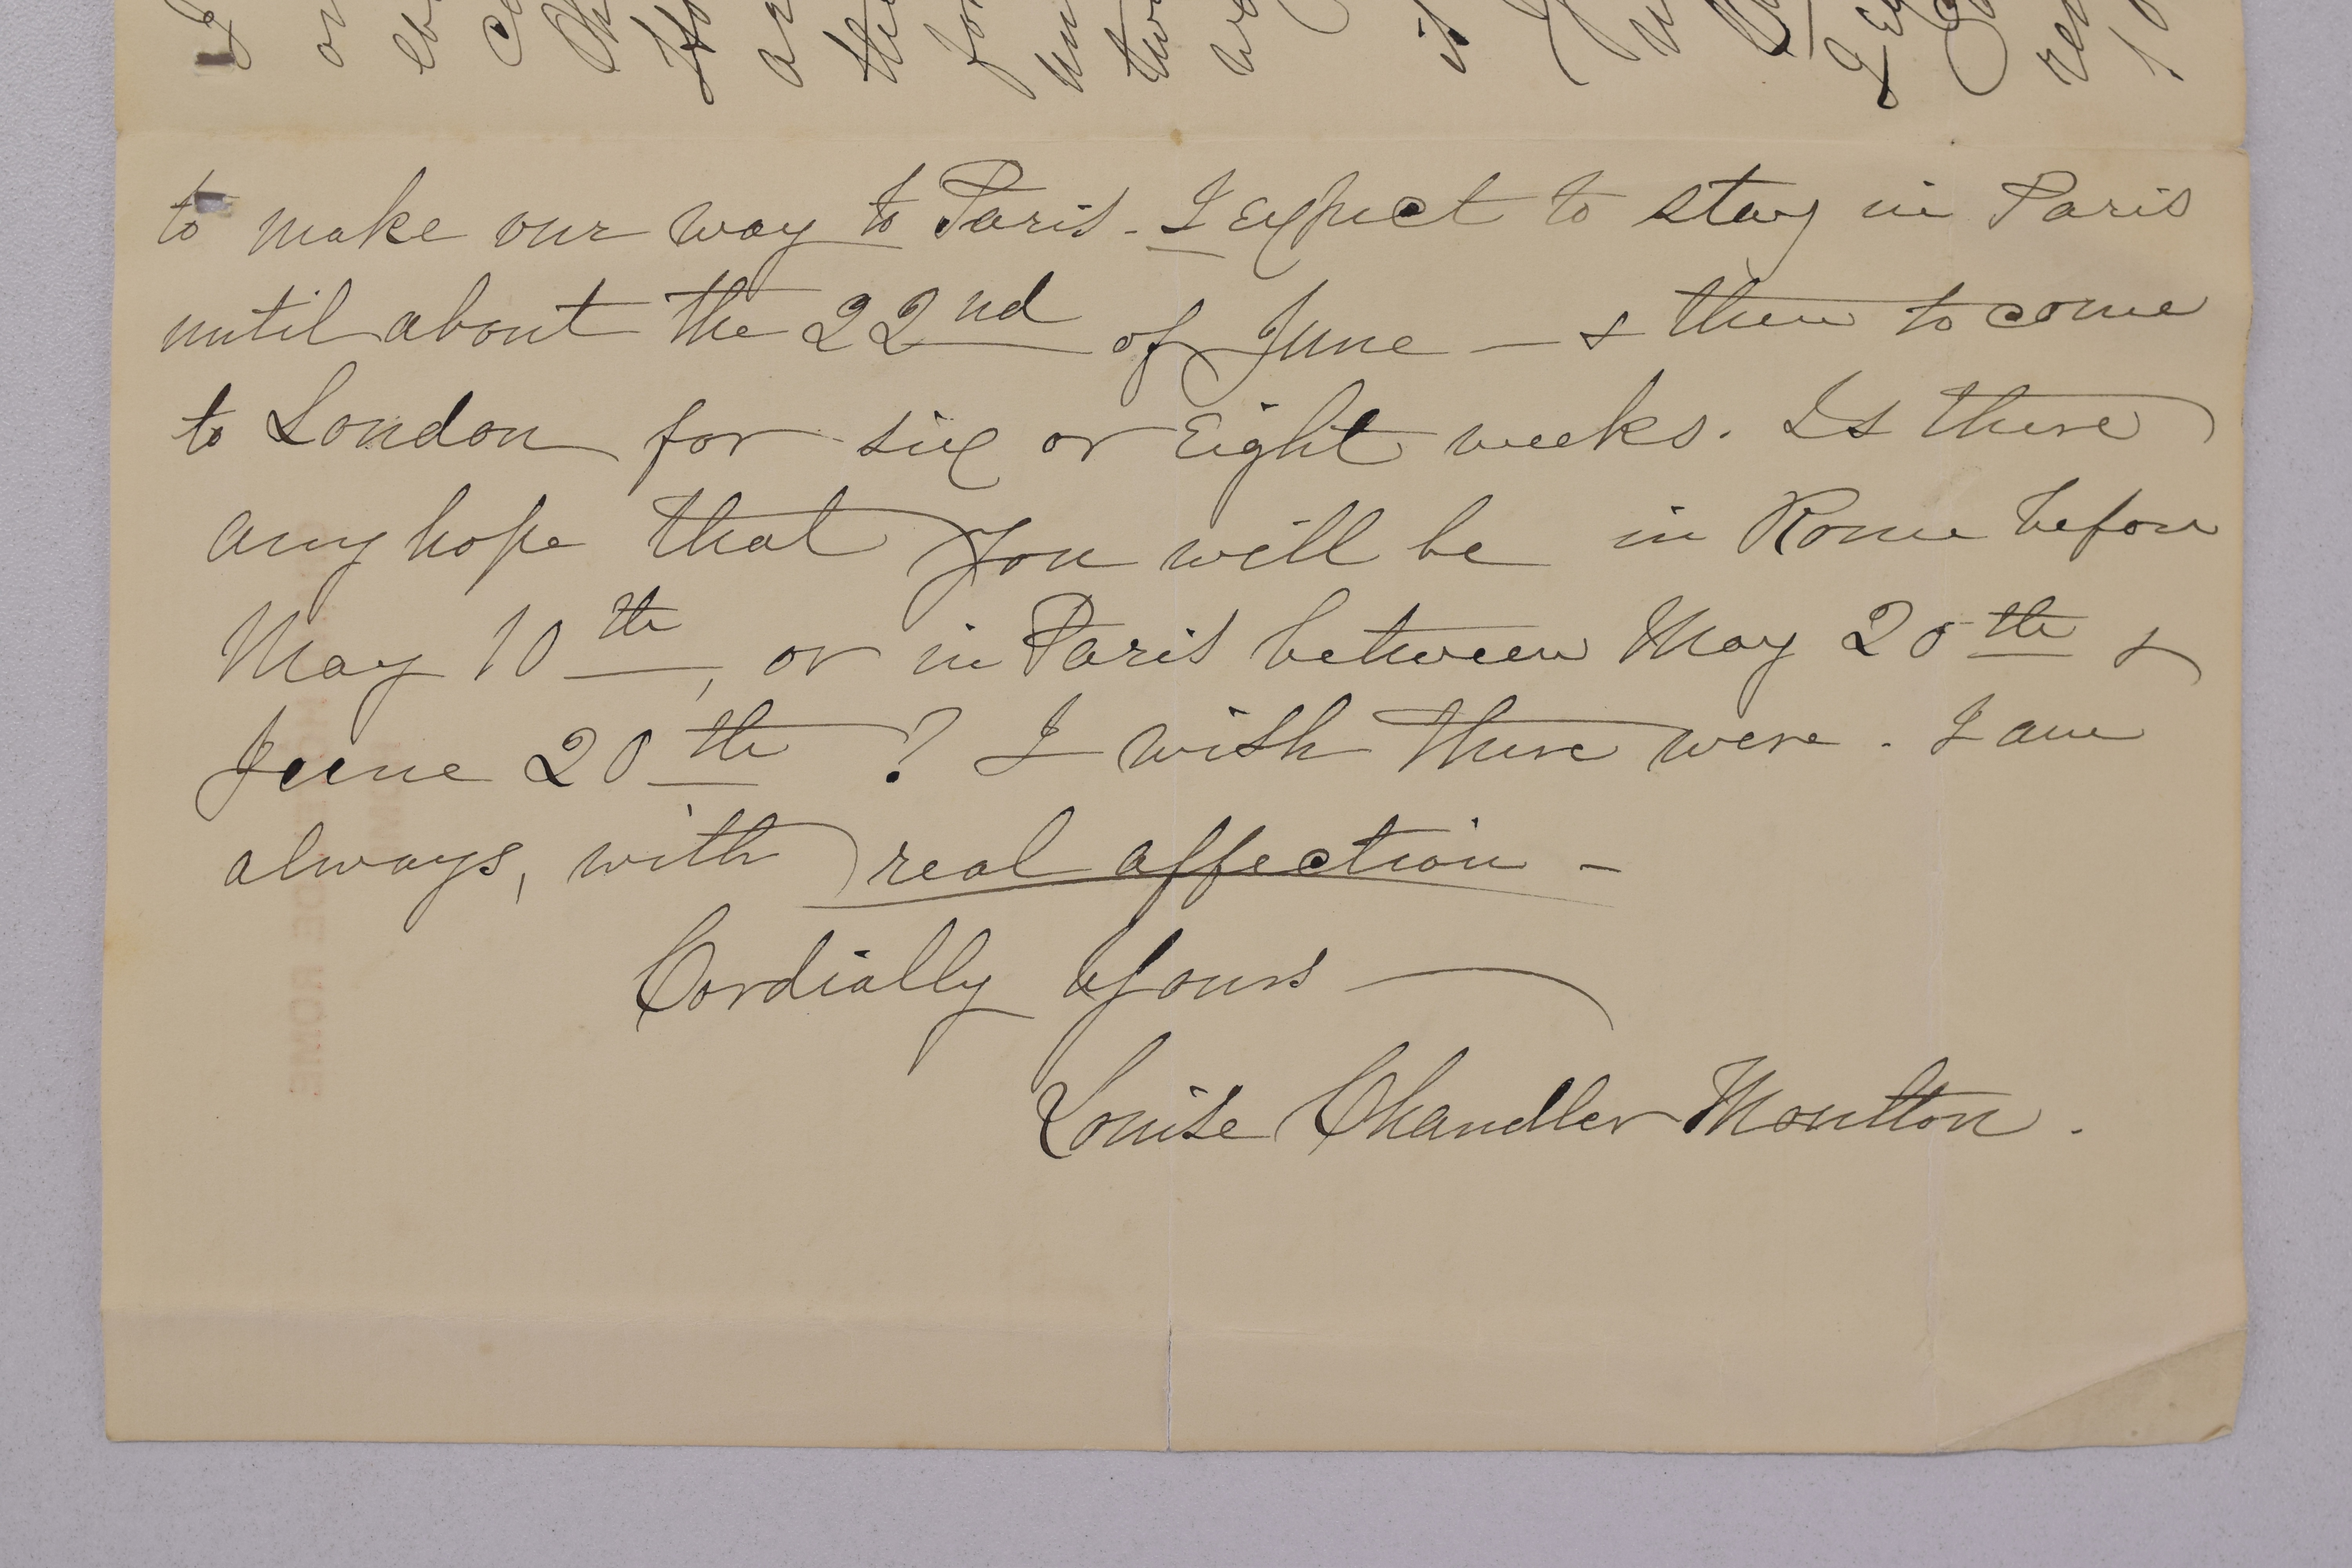 to make our way to Paris - I expect to stay in Paris
until about the 22nd of June — & then to come
to London for six or eight weeks. Is there
any hope that you will be in Rome before
May 10th, or in Paris between May 20th &
June 20th? I wish there were. I am
always, with real affection -
Cordially Yours —
Louise Chandler Moulton.